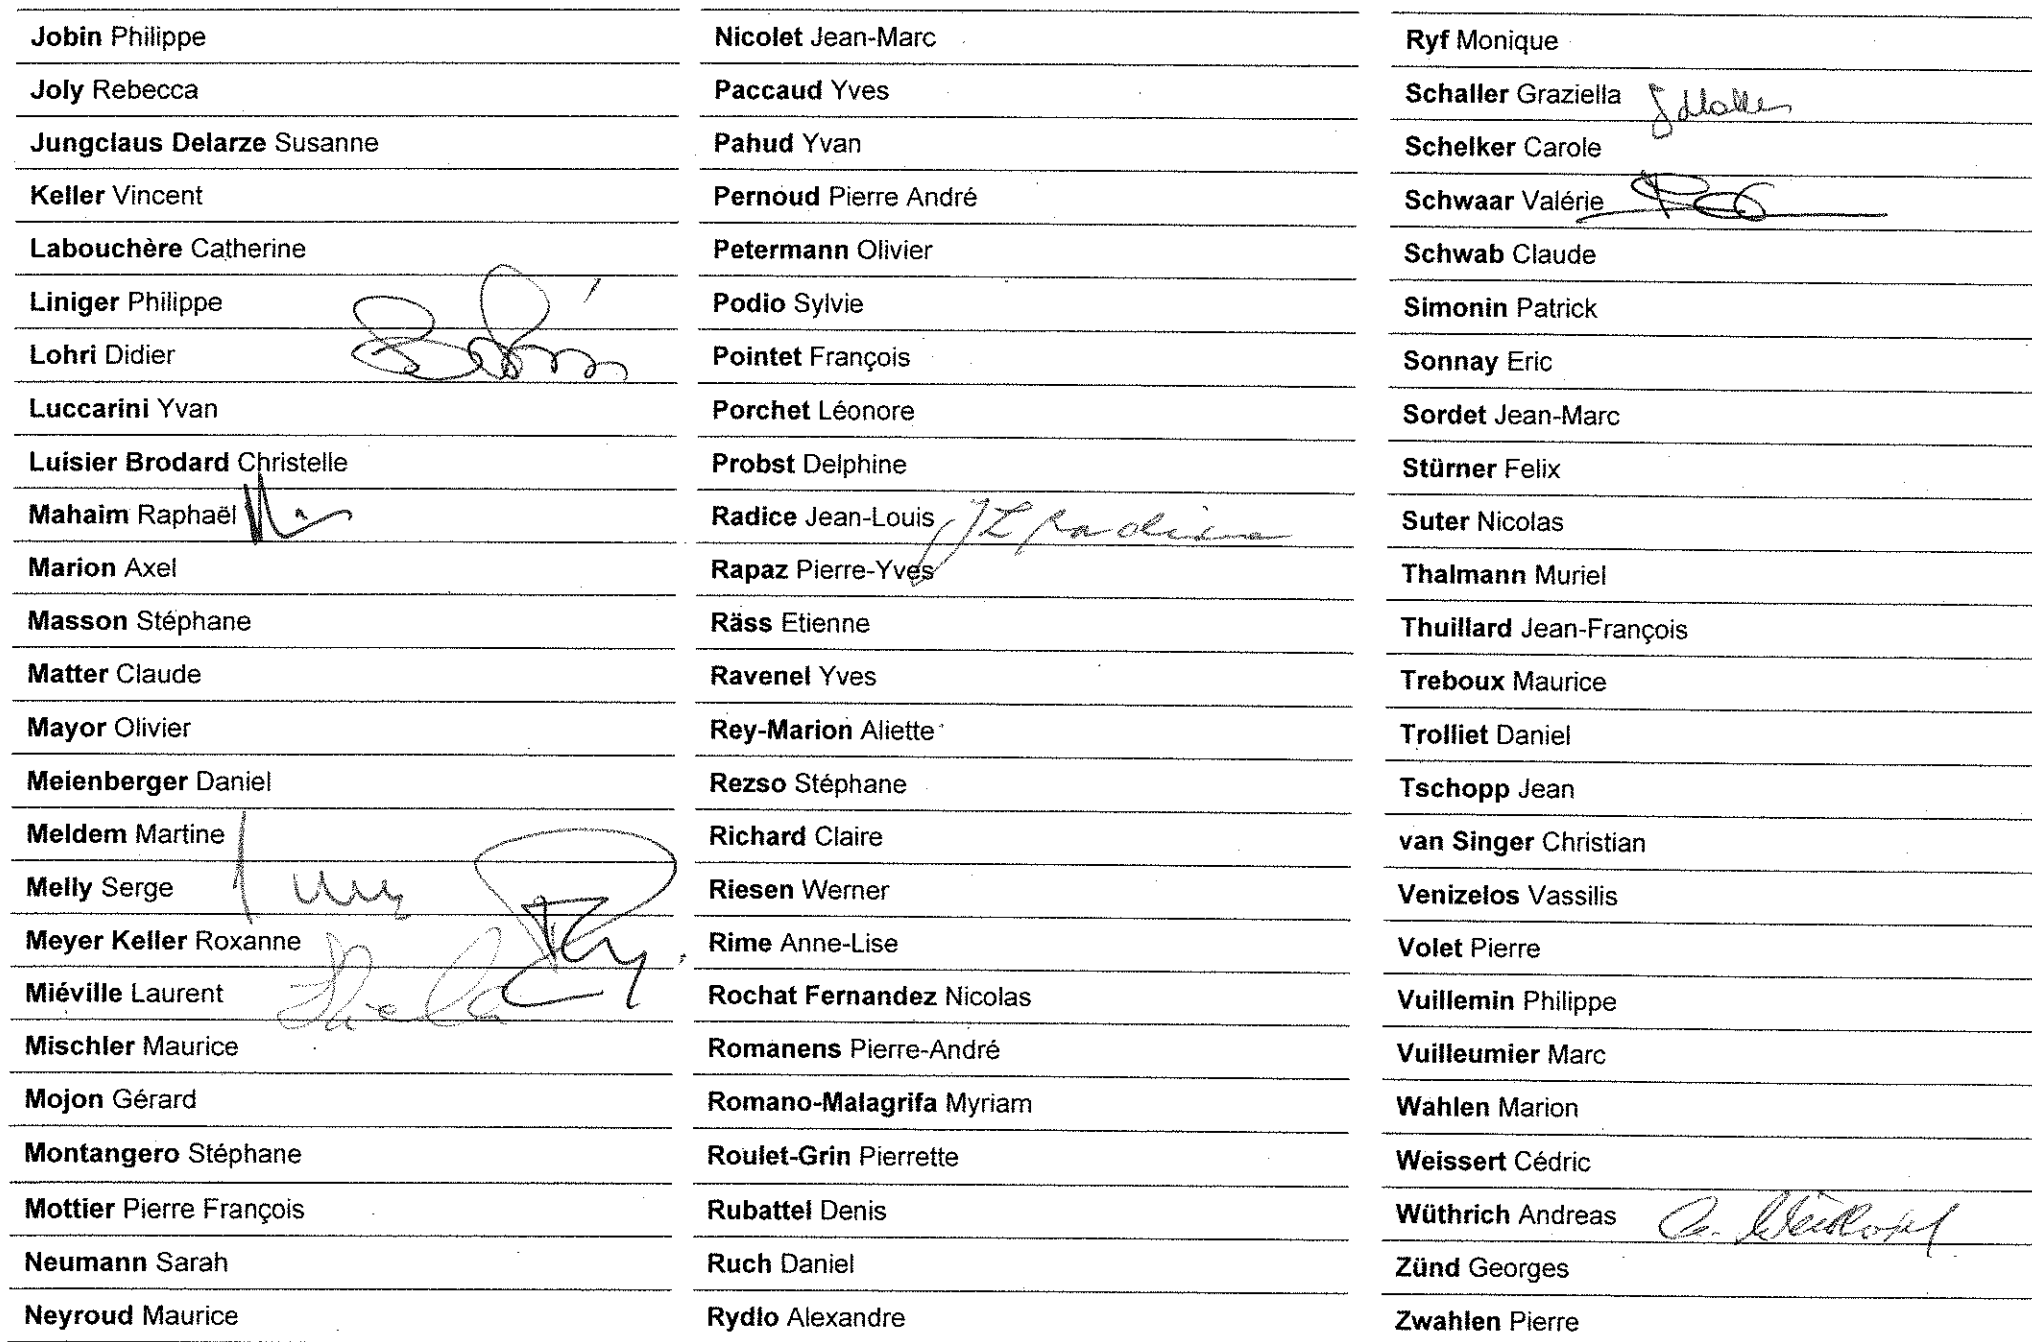 Jobin Philippe
Joly Rebecca
Jungclaus Delarze Susanne
Keller Vincent
Labouchère Catherine
Liniger Philippe
Lohri Didier
Luccarini Yvan
Luisier Brodard Christelle
Mahaim Raphaël
Marion Axel
Masson Stéphane
Matter Claude
Mayor Olivier
Meienberger Daniel
Meldem Martine
Melly Serge
Meyer Keller Roxanne
Miéville Laurent
Mischler Maurice
Mojon Gérard
Montangero Stéphane
Mottier Pierre François
Neumann Sarah
Neyroud Maurice
Nicolet Jean-Marc
Paccaud Yves
Pahud Yvan
Pernoud Pierre André
Petermann Olivier
Podio Sylvie
Pointet François
Porchet Léonore
Probst Delphine
Radice Jean-Louis JL Radice
Rapaz Pierre-Yves
Räss Etienne
Ravenel Yves
Rey-Marion Aliette
Rezso Stéphane
Richard Claire
Riesen Werner
Rime Anne-Lise
Rochat Fernandez Nicolas
Romanens Pierre-André
Romano-Malagrifa Myriam
Roulet-Grin Pierrette
Rubattel Denis
Ruch Daniel
Rydlo Alexandre
Ryf Monique
Schaller Graziella
Schelker Carole
Schwaar Valérie
Schwab Claude
Simonin Patrick
Sonnay Eric
Sordet Jean-Marc
Stürner Felix
Suter Nicolas
Thalmann Muriel
Thuillard Jean-François
Treboux Maurice
Trolliet Daniel
Tschopp Jean
van Singer Christian
Venizelos Vassilis
Volet Pierre
Vuillemin Philippe
Vuilleumier Marc
Wahlen Marion
Weissert Cédric
Wüthrich Andreas A. Wüthrich
Zünd Georges
Zwahlen Pierre